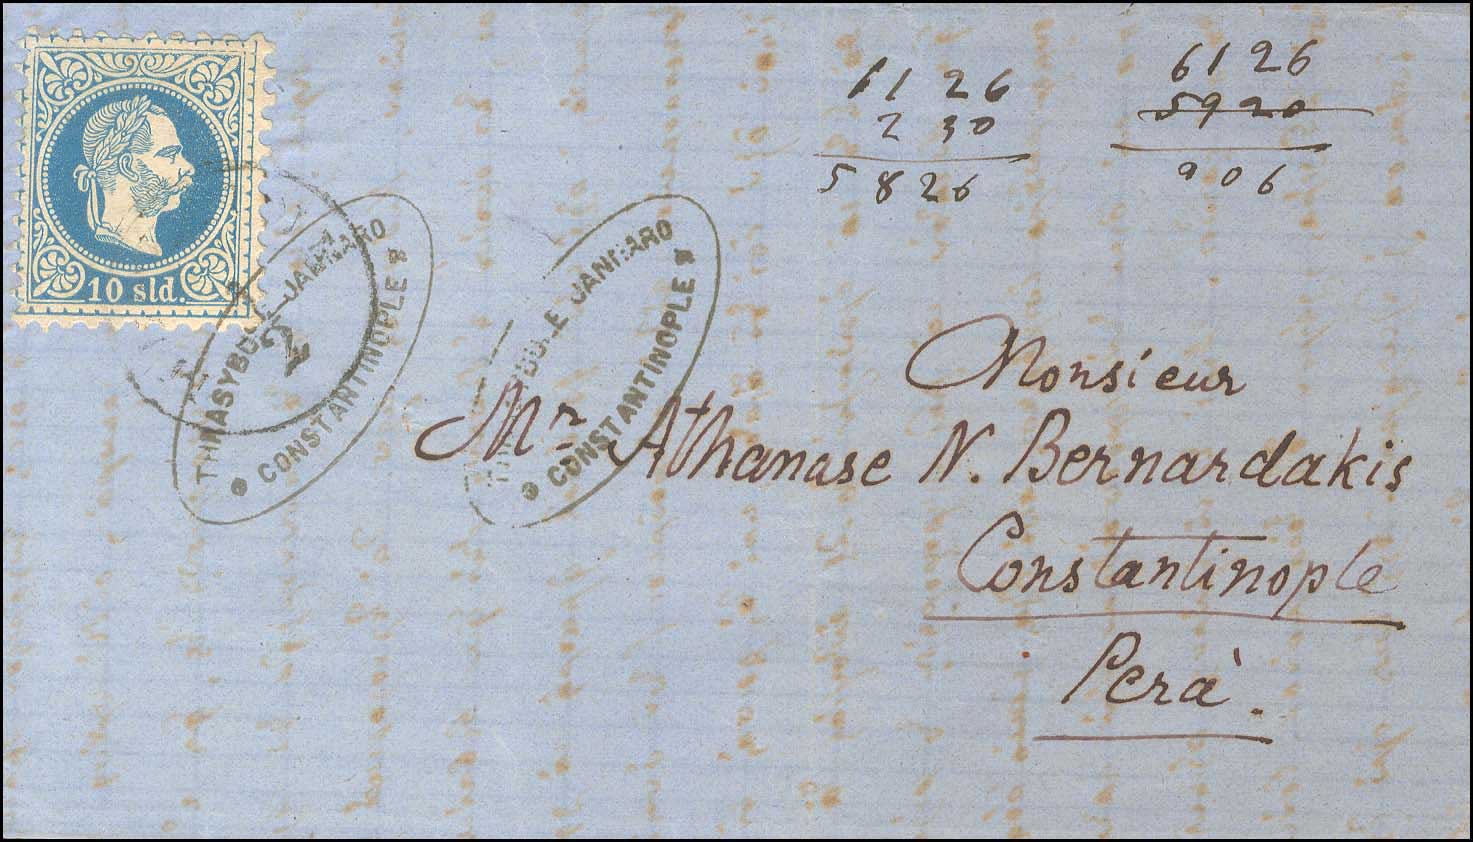 10 sld.
THRASYBULE JANNARO
CONSTANTINOPLE
2
THRASYBULE JANNARO
CONSTANTINOPLE
1126
230
5826
6126
5920
906
Monsieur
Mr Athanase N. Bernardakis
Constantinople
Perà.